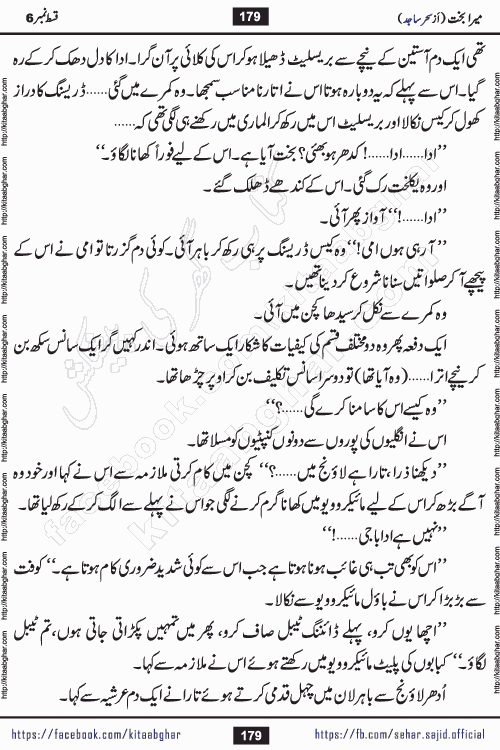 میرا بخت (از سحر ساجد)
179
قسط نمبر 6
تھی ایک دم آستین کے نیچے سے بریسلیٹ ڈھیلا ہو کر اس کی کلائی پر آن گرا۔ ادا کا دل دھک کر کے رہ
گیا۔ اس سے پہلے کہ یہ دوبارہ ہوتا اس نے اتارنا مناسب سمجھا۔ وہ کمرے میں گئی...... ڈریسنگ کا دراز
کھول کر کیس نکالا اور بریسلیٹ اس میں رکھ کر الماری میں رکھنے ہی لگی تھی کہ......
’’ادا...... ادا......! کدھر ہو بھئی؟ بخت آیا ہے۔ اس کے لیے فوراً کھانا لگاؤ۔‘‘
اور وہ یکلخت رک گئی۔ اس کے کندھے ڈھلک گئے۔
’’ادا......!‘‘ آواز پھر آئی۔
’’آ رہی ہوں امی!‘‘ وہ کیس ڈریسنگ پر ہی رکھ کر باہر آئی۔ کوئی دم گزرتا تو امی نے اس کے
پیچھے آ کر صلواتیں سنانا شروع کر دینا تھیں۔
وہ کمرے سے نکل کر سیدھا کچن میں آئی۔
ایک دفعہ پھر وہ دو مختلف قسم کی کیفیات کا شکار ایک ساتھ ہوئی۔ اندر کہیں گر ایک سانس سکھ بن
کر نیچے اترا...... (وہ آیا تھا) تو دوسرا سانس تکلیف بن کر اوپر چڑھا تھا۔
’’وہ کیسے اس کا سامنا کرے گی......؟‘‘
اس نے انگلیوں کی پوروں سے دونوں کنپٹیوں کو مسلا تھا۔
’’دیکھنا ذرا، تارا ہے لاؤنج میں......؟‘‘ کچن میں کام کرتی ملازمہ سے اس نے کہا اور خود وہ
آگے بڑھ کر اس کے لیے مائیکروویو میں کھانا گرم کرنے لگی جو اس نے پہلے سے الگ کر کے رکھ لیا تھا۔
’’نہیں ہے ادا باجی......!‘‘
’’اس کو بھی تب ہی غائب ہونا ہوتا ہے جب اس سے کوئی شدید ضروری کام ہوتا ہے۔‘‘ کوفت
سے بڑبڑا کر اس نے باؤل مائیکروویو سے نکالا۔
’’اچھا یوں کرو، پہلے ڈائننگ ٹیبل صاف کرو، پھر میں تمہیں پکڑاتی جاتی ہوں، تم ٹیبل
لگاؤ۔‘‘ کبابوں کی پلیٹ مائیکروویو میں رکھتے ہوئے اس نے ملازمہ سے کہا۔
اُدھر لاؤنج سے باہر لان میں چہل قدمی کرتے ہوئے تارا نے ایک دم عرشیہ سے کہا۔
https://facebook.com/kitaabghar
179
https://fb.com/sehar.sajid.official
http://kitaabghar.com
کتاب گھر کی پیشکش
facebook.com/kitaabghar
kitaabghar.com